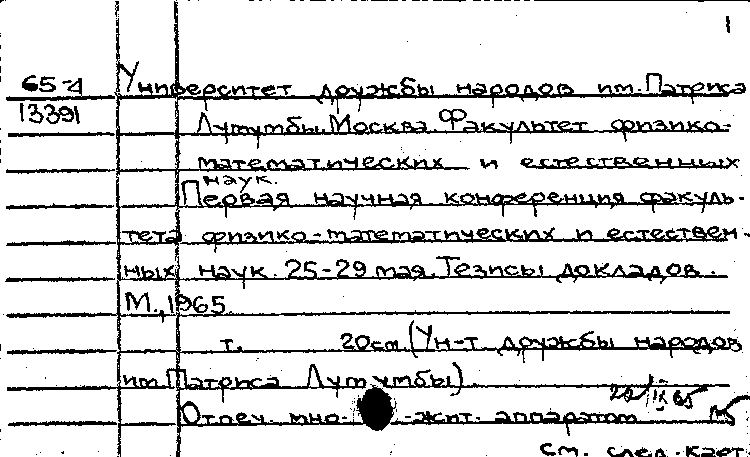 1
65-4 Университет дружбы народов им. Патриса
13391 Лумумбы. Москва. Факультет физико-
математических и естественных
наук.
Первая научная конференция факуль-
тета физико-математических и естествен-
ных наук. 25-29 мая. Тезисы докладов.
М., 1965.
т. 20см. (Ун-т дружбы народов
им. Патриса Лумумбы).
Отпеч. мно- -жит. аппаратом
см. след. карт